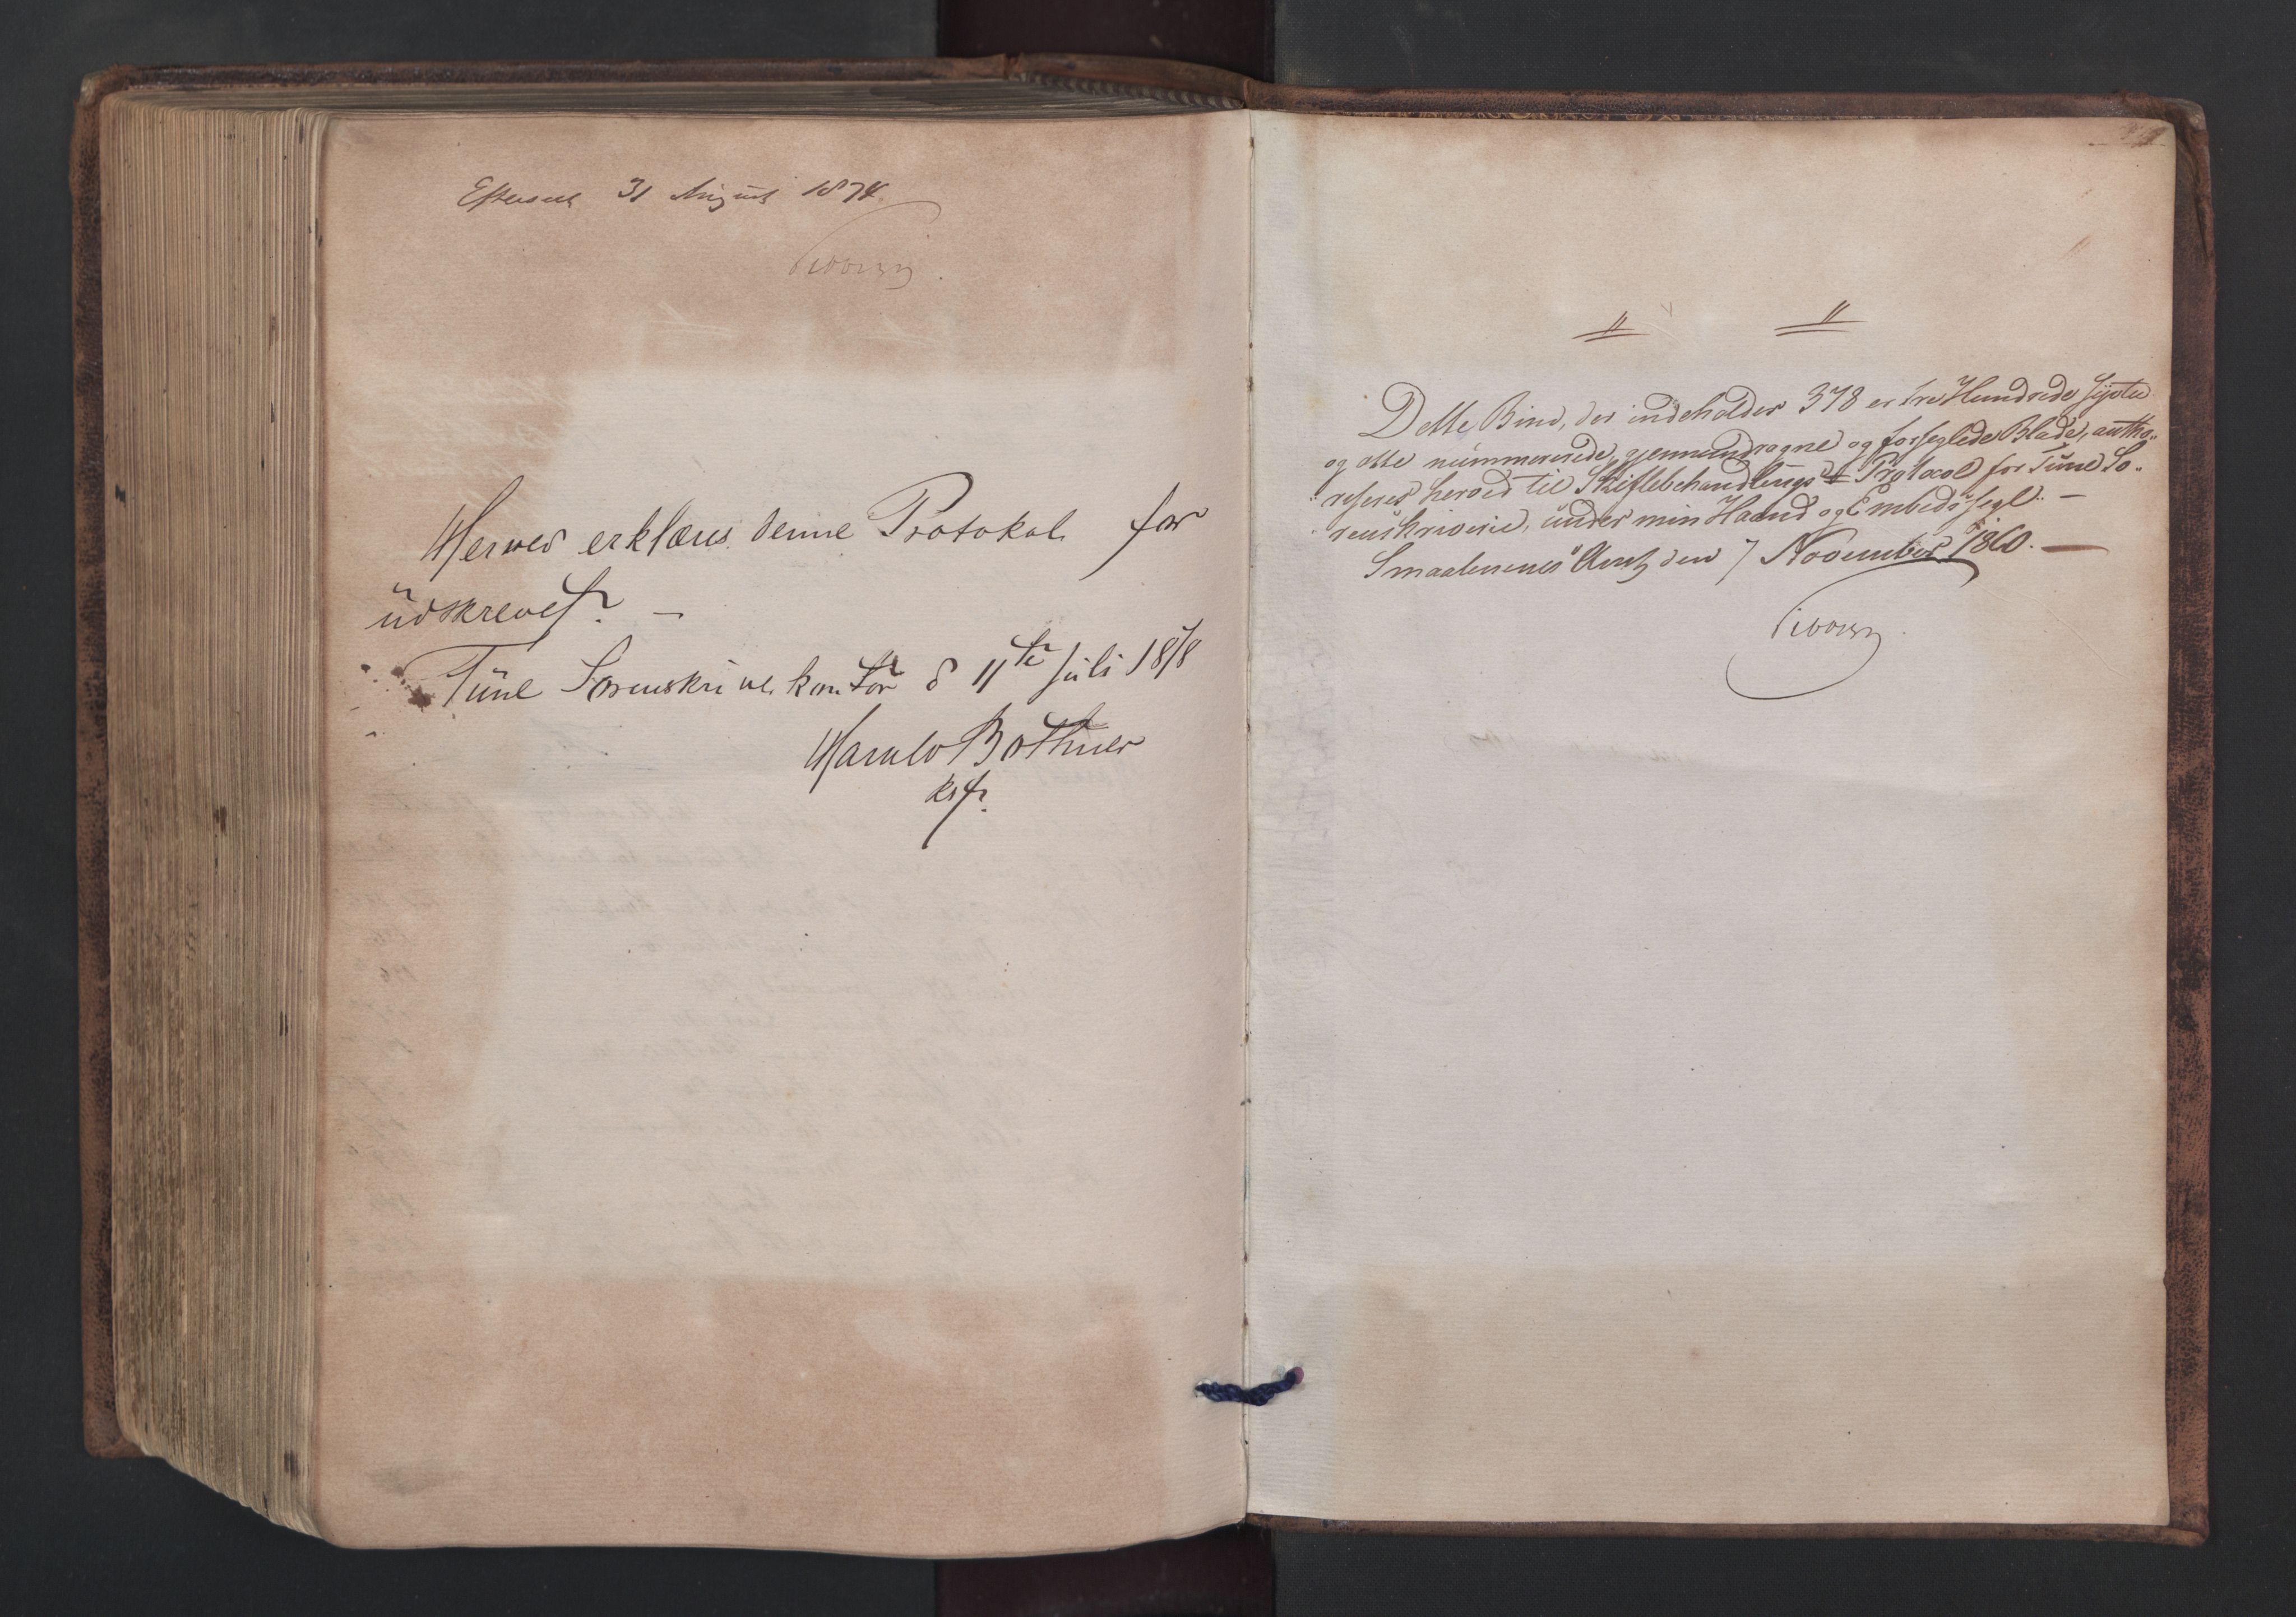 Efterseet 31 August 1874.
Herved erklæres denne Protokol for
üdskrevet. —
Tüne Sorenskriverkontor d 11te Juli 1878
Harald Bothner
kst.
Dette Bind, der indeholder 378 er tre Hundrede Sÿtti
og otte nümmererede, gjennemdragne og forseglede Blade, autho„
„riseres herved til Skiftebehandlings Protocol for Tüne So„
„renskriverie, ünder min Haand og Embeds Segl. —
Smaalenenes Amt, den 7 November 1860. —